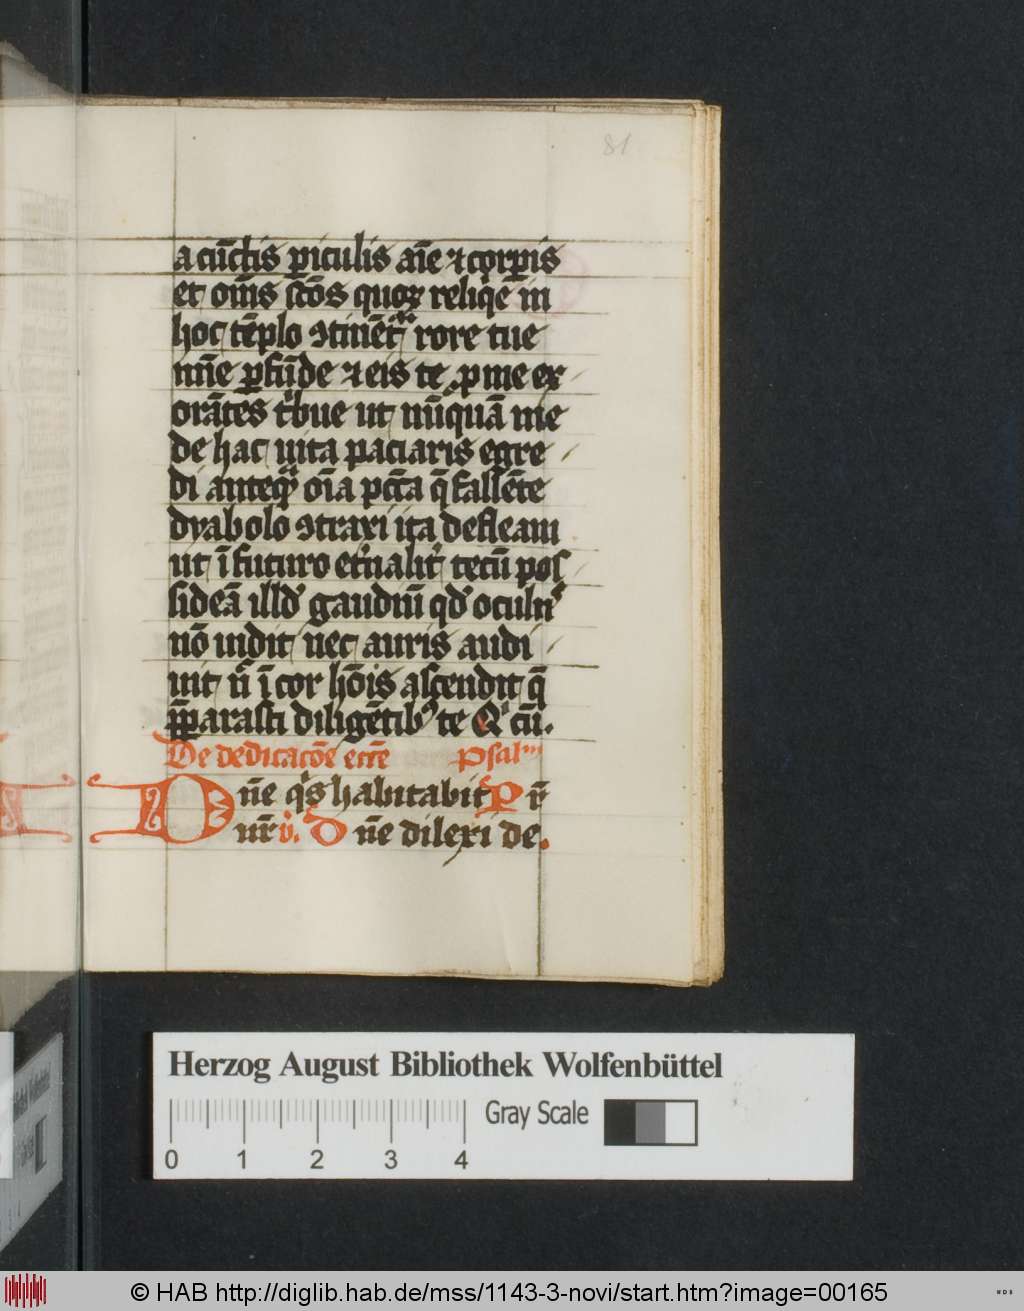 81
a cūctis ꝑiculis aīe ⁊ corꝑis
et oīms scōs quoꝝ reliqͥe in
hoc tēplo ꝯtinēt᷑ rore tue
mīe ꝑfūde ⁊ eis te ꝓ me ex
orātes tͥbue ut nūquā me
de hac uita paciaris egre
di anteqᷓ oīa pctā q̄ fallēte
dyabolo ꝯtraxi ita defleam
ut ī futuro et͛nalit͛ tecū pos
sideā illd̓ gaudiū qd̓ oculꝰ
nō uidit nec auris audi
uit n̄ ī cor hōis ascendit q̄
p̄parasti diligētibꝰ te Qͥ cū.
De dedicacōe eccͣe Psalᵐ
Dn̄e qͥs habitabit P r̄
ur̄ v̓. D n̄e dilexi de.
Herzog August Bibliothek Wolfenbüttel
Gray Scale
0 1 2 3 4
© HAB http://diglib.hab.de/mss/1143-3-novi/start.htm?image=00165